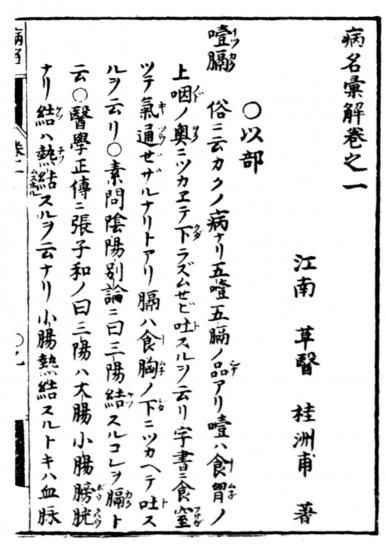 病名彙解卷之一
江南 草醫 桂洲甫 著
〇以部
噎膈 俗ニ云カクノ病ナリ五噎五膈ノ品アリ噎ハ食胃ノ
上咽ノ奥ニツカエテ下ラズムせビ吐スルヲ云リ字書ニ食窒
ツテ氣通せザルナリトアリ膈ハ食胸ノ下ニツカヘテ吐ス
ルヲ云リ〇素問陰陽别論ニ曰三陽結スルコレヲ膈ト
云〇醫學正傳ニ張子和ノ曰三陽ハ大腸小腸膀胱
ナリ結ハ熱結スルヲ云ナリ小腸熱結スルトキハ血脉